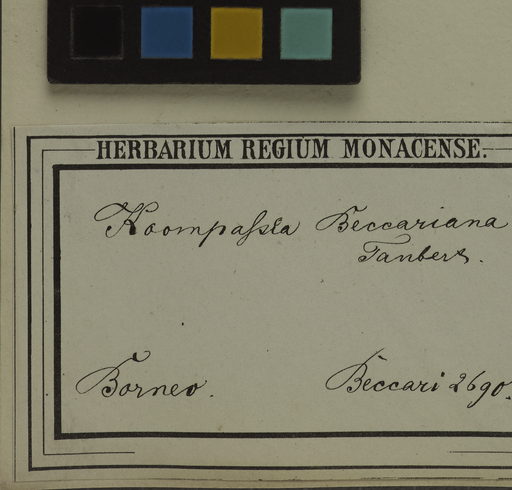 HERBARIUM REGIUM MONACENSE.
Koompassia Beccariana
Taubert.
Borneo.
Beccari 2690.